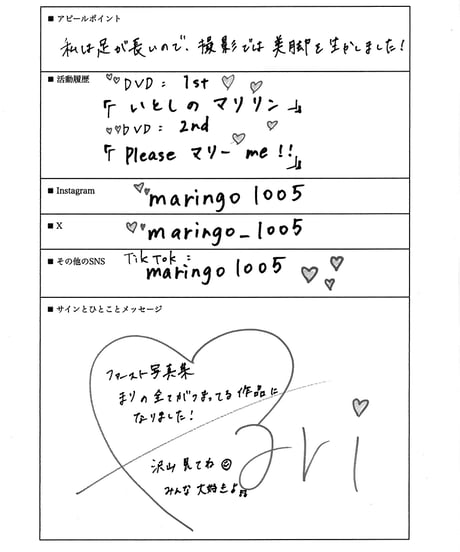 ■ アピールポイント
私は足が長いので、撮影では美脚を生かしました!
■ 活動履歴
DVD: 1st
「いとしの マリリン」
DVD: 2nd
「Please マリー me!!」
■ Instagram
maringo1005
■ X
maringo_1005
■ その他のSNS
TikTok:
maringo1005
■ サインとひとことメッセージ
ファースト写真集
まりの全てがつまってる作品に
なりました!
沢山見てね
みんな大好きよ
Mari